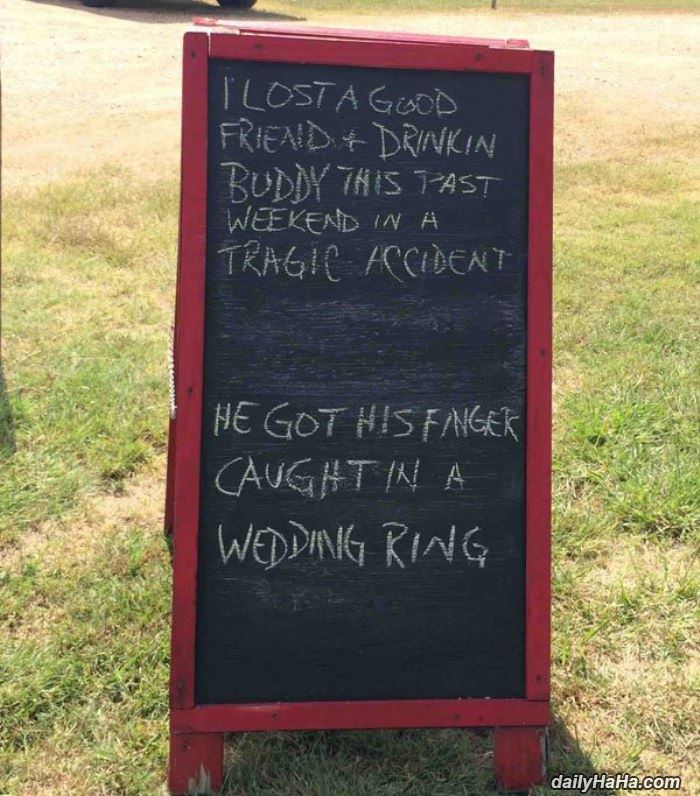 I LOST A GOOD
FRIEND + DRINKIN
BUDDY THIS PAST
WEEKEND IN A
TRAGIC ACCIDENT
HE GOT HIS FINGER
CAUGHT IN A
WEDDING RING
dailyHaHa.com